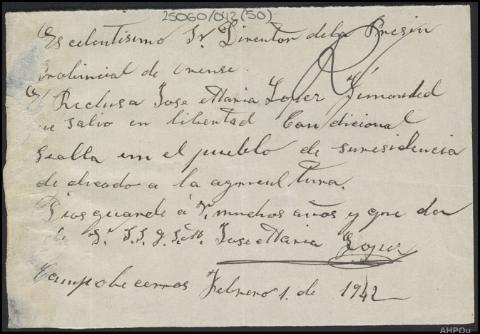 25060/042(50)
Escelentisimo Sr Direntor de la Presin
Provincial de Orense.
El Reclusa Jose Maria Lopez
que salio en libertad Condicional
sealla en el pueblo de suresidencia
dedicado a la agrricultura.
Dios guarde á V. muchos años y que da
Jose Maria Lopez
Campobecerros Febrero 1. de 1942
AHPOu